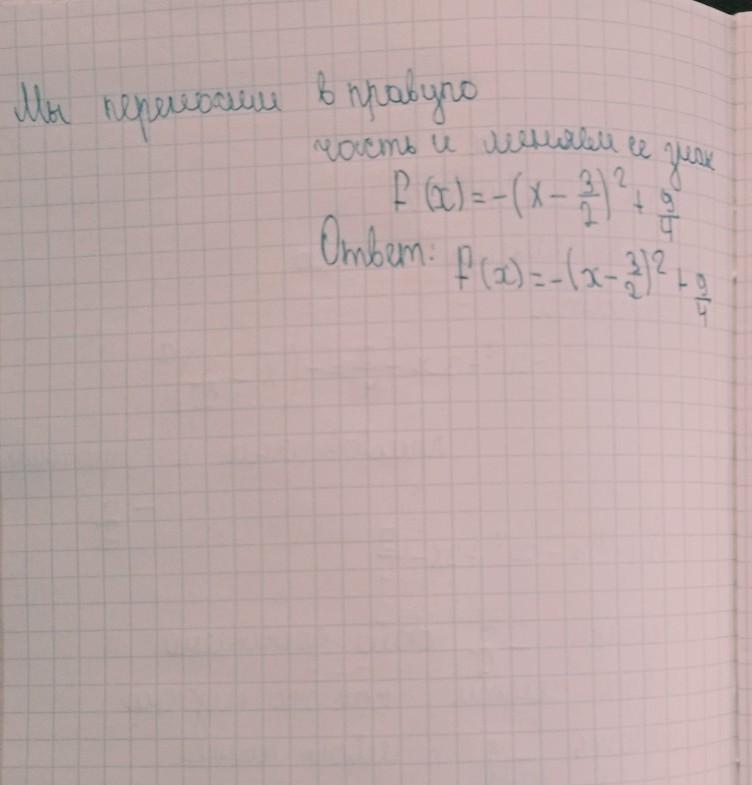 Мы переносим в правую
часть и меняем ее знак
f(x)=-(x-3/2)²+9/4
Ответ: f(x)=-(x-3/2)²+9/4